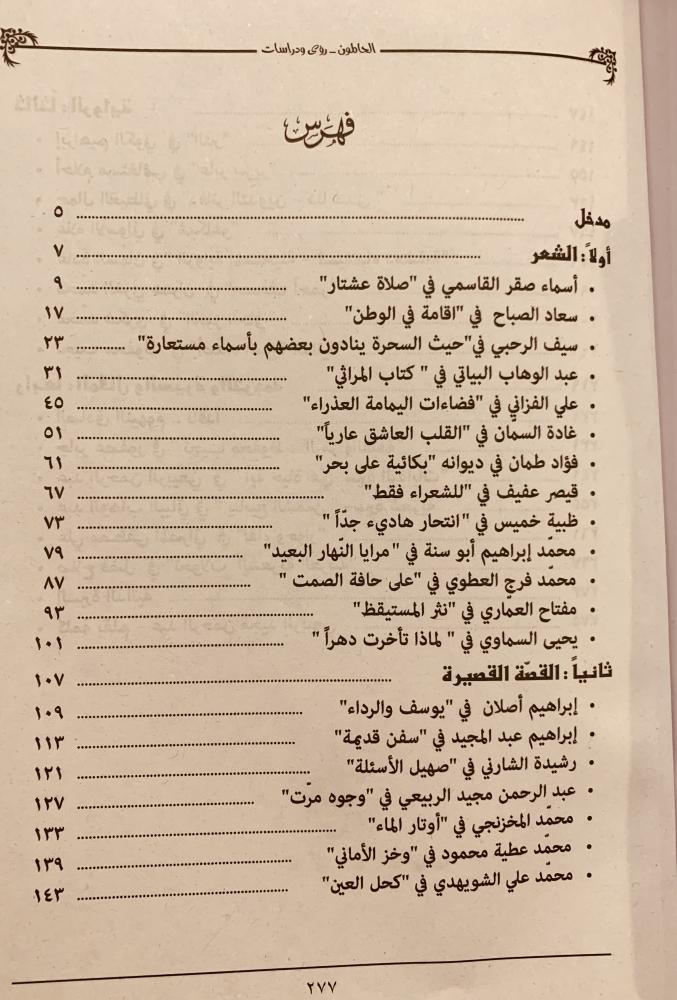 الحالمون - رؤى ودراسات
فهرس
مدخل ........ ٥
أولاً: الشعر ........ ٧
• أسماء صقر القاسمي في "صلاة عشتار" ........ ٩
• سعاد الصباح في "اقامة في الوطن" ........ ١٧
• سيف الرحبي في"حيث السحرة ينادون بعضهم بأسماء مستعارة" ........ ٢٣
• عبد الوهاب البياتي في " كتاب المراثي" ........ ٣١
• علي الفزاني في "فضاءات اليمامة العذراء" ........ ٤٥
• غادة السمّان في "القلب العاشق عارياً" ........ ٥١
• فؤاد طمان في ديوانه "بكائية على بحر" ........ ٦١
• قيصر عفيف في "للشعراء فقط" ........ ٦٧
• ظبية خميس في "انتحار هاديء جدّاً " ........ ٧٣
• محمّد إبراهيم أبو سنة في " مرايا النّهار البعيد" ........ ٧٩
• محمّد فرج العطوي في "على حافة الصمت " ........ ٨٧
• مفتاح العمّاري في "نثر المستيقظ" ........ ٩٣
• يحيى السماوي في " لماذا تأخرت دهراً " ........ ١٠١
ثانياً: القصّة القصيرة ........ ١٠٧
• إبراهيم أصلان في "يوسف والرداء" ........ ١٠٩
• إبراهيم عبد المجيد في "سفن قديمة" ........ ١١٣
• رشيدة الشارني في "صهيل الأسئلة" ........ ١٢١
• عبد الرحمن مجيد الربيعي في "وجوه مرّت" ........ ١٢٧
• محمّد المخزنجي في "أوتار الماء" ........ ١٣٣
• محمّد عطية محمود في "وخز الأماني" ........ ١٣٩
• محمّد علي الشويهدي في "كحل العين" ........ ١٤٣
٢٧٧